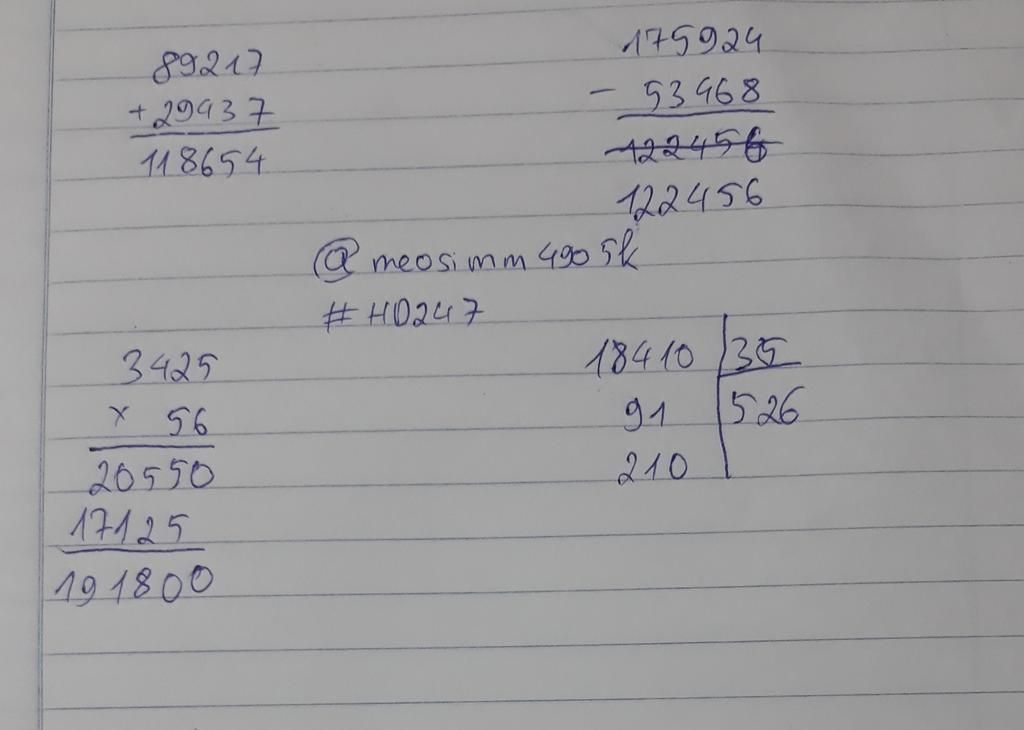 89217
+29437
118654
175924
- 53468
122456
122456
@meosimm4905k
#HD247
3425
x 56
20550
17125
191800
18410 35
91 526
210